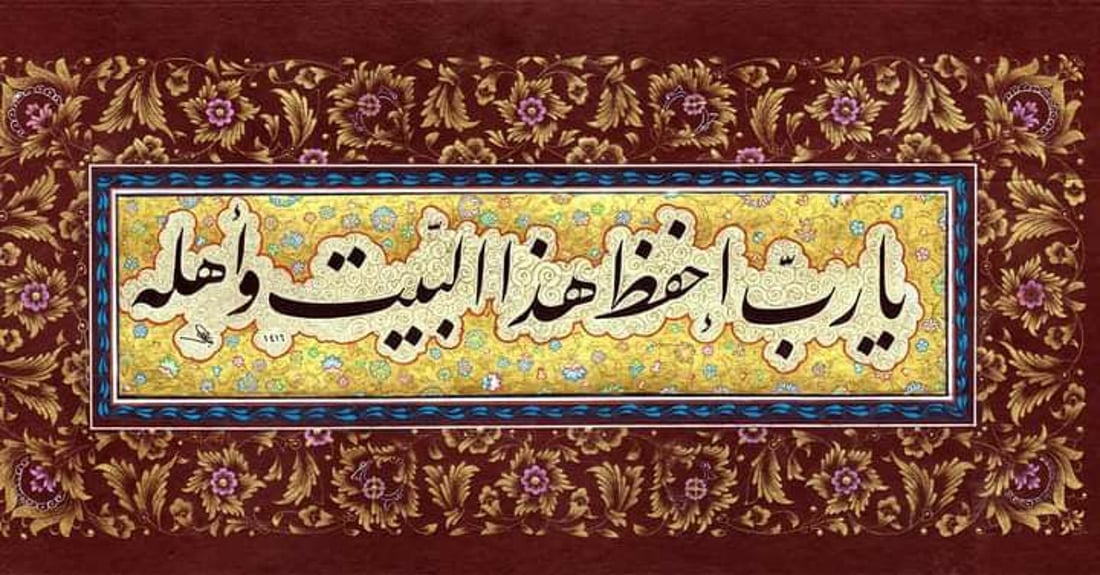 يا ربّ إحفظ هذا البّيت وأهله
١٤١٦